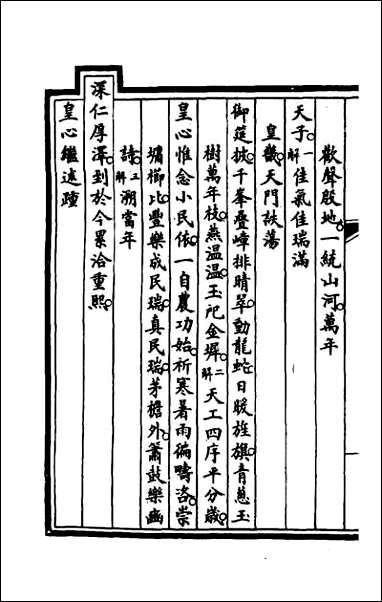 歡聲殷地一統山河萬年
天子一解佳氣佳瑞滿
皇畿天門詄蕩
御筵披千峯疊嶂排晴翠動龍蛇日暖旌旗青蔥玉
樹萬年枝燕温温玉戺金墀二解天工四序平分歲
皇心惟念小民依一自農功始祈寒暑雨徧疇洛崇
墉櫛比豐樂成民瑞真民瑞茅檐外簫鼓樂豳
詩三解溯當年
深仁厚澤到於今累洽重熙
皇心繼述踵